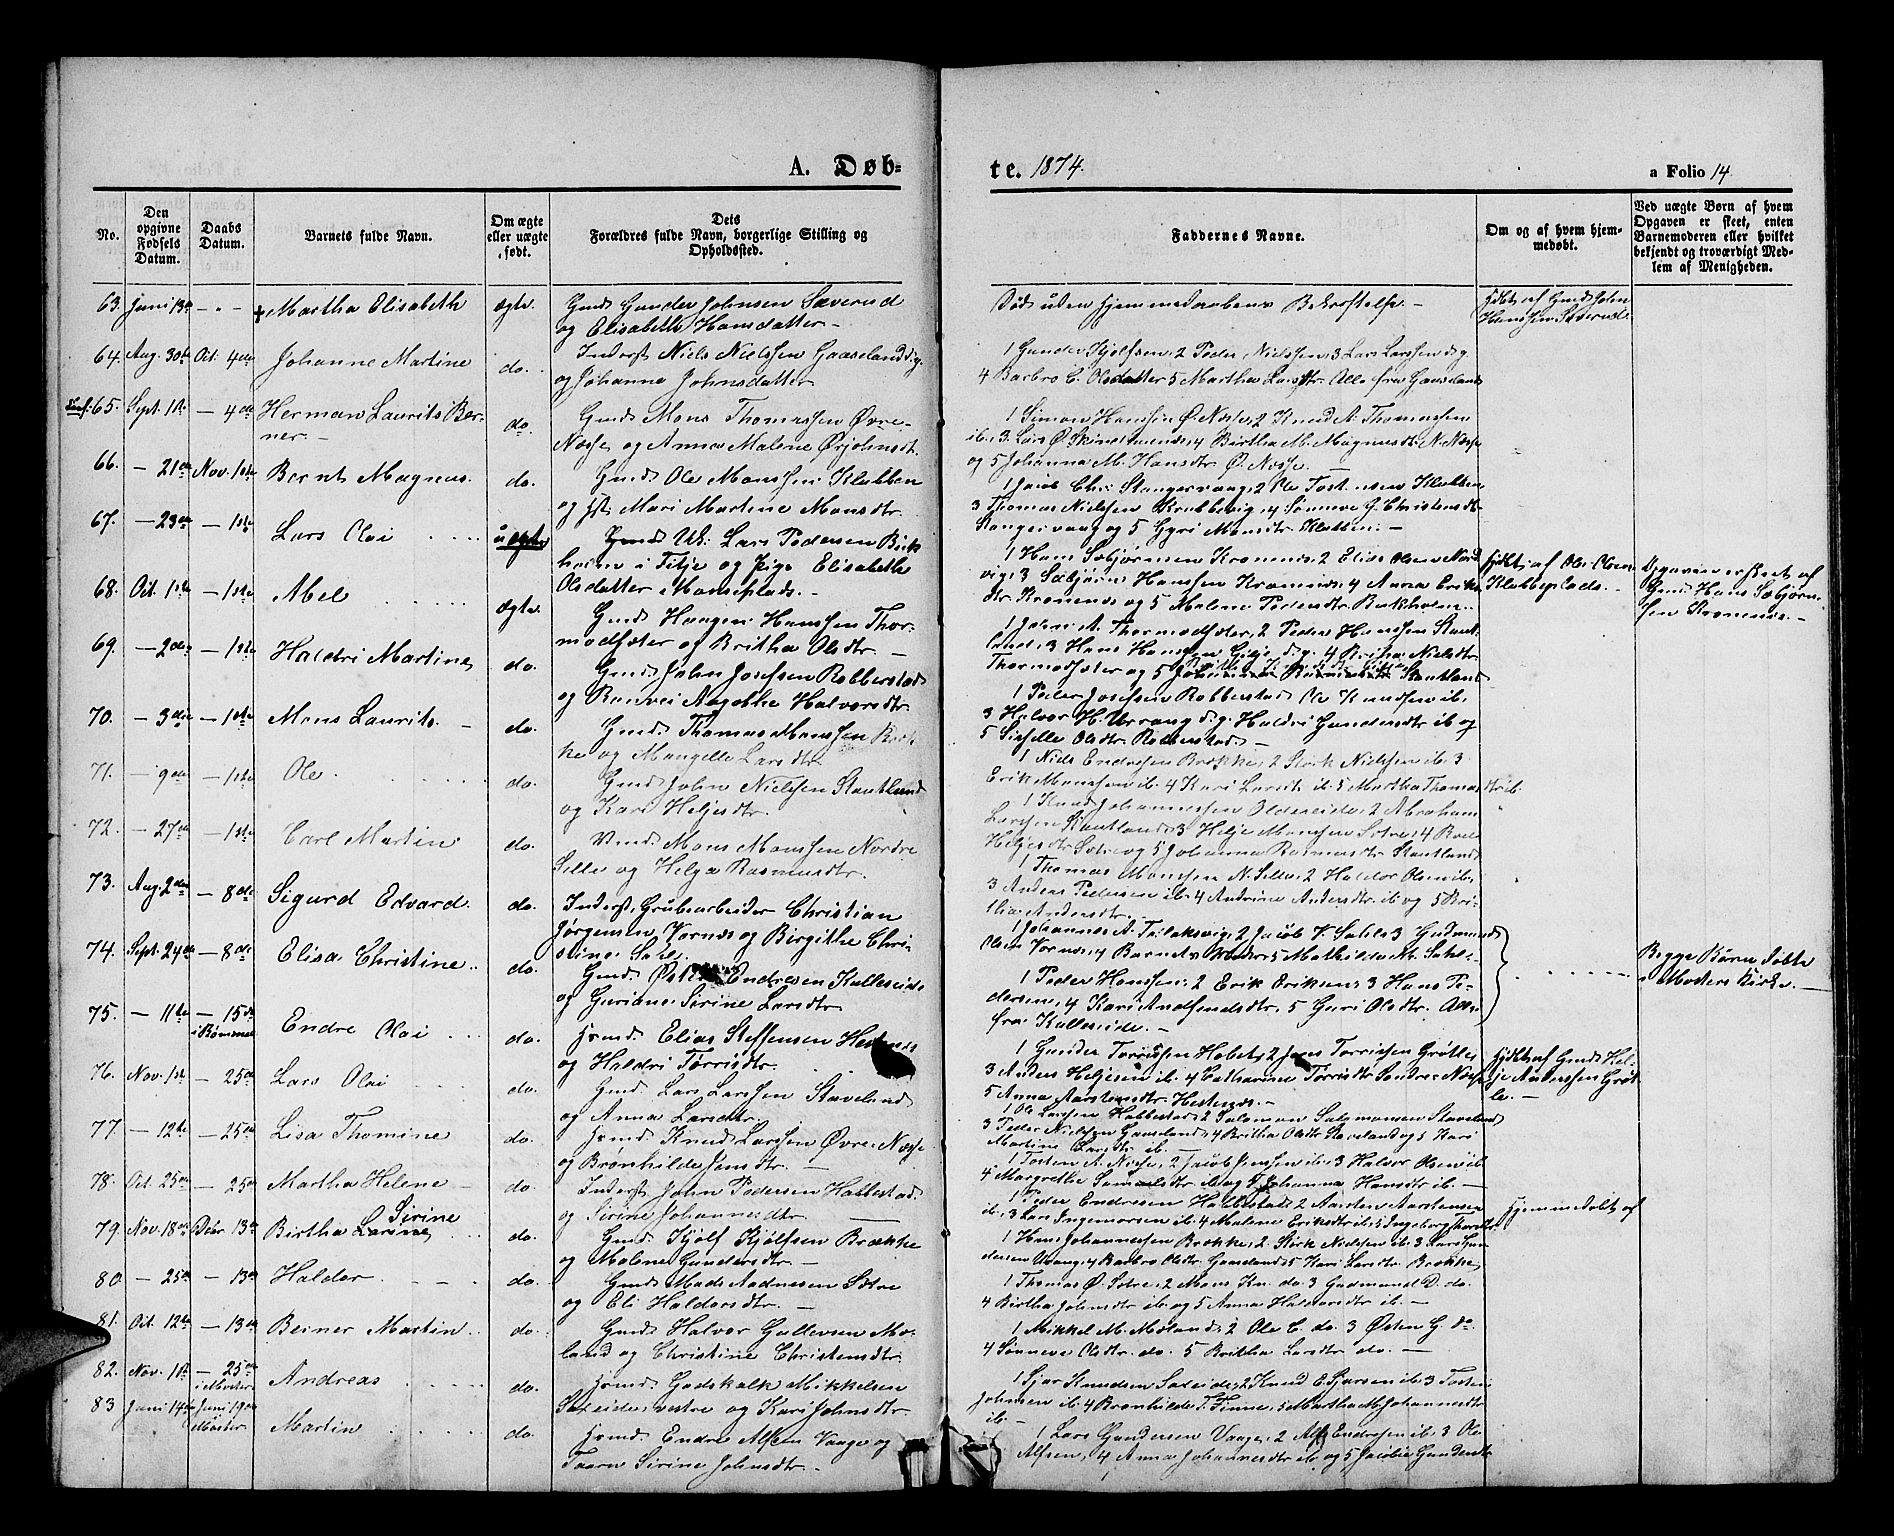 A. Døb-
te. 1874.
a Folio 14
No.
Den opgivne Fødsels Datum.
Daabs Datum.
Barnets fulde Navn.
Om ægte eller uægte født.
Dets Forældres fulde Navn, borgerlige Stilling og Opholdssted.
Faddernes Navne.
Om og af hvem hjem-
medøbt.
Ved uægte Børn af hvem
Opgaven er skeet, enten
Barnemoderen eller hvilket
bekjendt og troværdigt Med-
lem af Menigheden.
63. Juni 13de - " - Martha Elisabeth ægte. Gmd. Gunder Johnsen Sæverud
og Elisabeth Hansdatter
Død uden Hjemmedaabens Bekræftelse. -
Hjdbt. af Gmd. John
Hanssen Sæverud.
64. Aug. 30te Oct. 4de Johanne Martine do. Inderst Niels Nielssen Gaaseland d. y.
og Johanna Johnsdatter
1 Gunder Kjølfsen, 2 Peder Nielssen, 3 Lars Larssen d. y.
4 Barbro C. Olsdatter 5 Martha Larsdtr. Alle fra Gaaseland
65. Sept. 1ste - 4de Herman Laurits Ber-
ner. - do. Gmd. Mons Thomassen Øvre-
Næsse og Anna Malene Ørjohnsdt.
1 Simon Hanssen Ø. Næsse, 2 Knud A. Thomassen
ib. 4 Birtha M. Magnusdtr. N. Næsse
og 5 Johanna M. Hansdtr. Ø. Næsse. -
66. - 21de Nov. 1ste Bernt Magnus do. Gmd. Ole Monssen Klubben
og Mari Martine Monsdtr.
1 Jacob Chr. Stangervaag, 2 Ole
3 Thomas Nielssen 4 Sønneve G. Christensdt.
Stangervaag og 5 Gyri Monsdtr. Klubben. -
67. - 23de - 1ste Lars Olai uægte Lars Pedersen Birk-
holm i Fitje og Pige Elisabeth
Olsdatter
1 Hans Sæbjørnsen Kromnes, 2 Elias Olsen Nord
vig, 3 Sæbjørn Hanssen Kromnes, 4 Anna Eriks-
dtr. Kromnes og 5 Malene Pedersdtr. Birkholm.
Hjdbt. af Ole Olsen
Klubbeplads. -
Opgaven er skeet af
Gmd. Hans Sæbjørn-
sen Kromnes. -
68. Oct. 1ste - 1ste Abel ægte. Gmd. Haagen Hanssen Thor-
modsæter og Britha Olsdtr.
1 John A. Thormodsæter, 2 Peder Hanssen Staut-
land, 3 Hans Hanssen Gilje d. y. 4 Nielsdtr.
Thormodsæter og 5 Stautland
69. - 2den - 1ste Haldri Martine do. Gmd. John Josefsen Robberstad
og Ranvei Aagothe Halvorsdtr.
1 Peder Josefsen Robberstad Ole Knudsen ib.
3 Halvor H. Urvaag d. y. Haldri Gundersdtr ib og
5 Sisselle Olsdtr. Robberstad. -
70. - 3die - 1ste Mons Laurits. - do. Gmd. Thomas Monssen Bræk-
ke og Mangelle Larsdtr.
1 Niels Endresen Brække, 2 Størk Nielsen ib. 3
Erik Monssen ib. 4 Kari Larsdt. ib. 5 Martha Thomasdtr ib.
71. - 9de - 1ste Ole do. Gmd. John Nielssen Stautland
og Kari Heljesdtr.
1 Knud Johannessen Oldereide, 2 Abraham
Larssen Stautland 3 Helje Monssen Sætre, 4
Heljesdtr Sætre og 5 Johanna Rasmusdtr Stautland
72. - 27de - 1ste Carl Martin do. Mons Monssen Nordre
Selle og Helga Rasmusdtr.
1 Thomas Monssen N. Selle, 2 Haldor Olsen ib.
3 Anders Pedersen ib. 4 Andrine Andersdtr. ib. og 5 Bri-
tha Andersdtr. -
73. Aug. 2den - 8de Sigurd Edvard. do. Inderst, Grubearbeider Christian
Jørgensen Vornæs og Birgithe Chri-
stine
1 Johannes A. Teilaksvig, 2 Jacob 3 Gudmund
Olsen Vornæs, 4 Barnets 5 Mathilde M.
74. Sept. 24de - 8de Elisa Christine do. Gmd. Østen Endresen Kulleseide
og Guriane Serine Larsdtr.
1 Peder Hanssen, 2 Erik Eriksen, 3 Hans Pe-
dersen, 4 Kari Andfindsdtr. 5 Guri Olsdtr. Alle
fra Kulleseide. -
Begge Børn døbte
i Mosters Kirke. -
75. - 11te - 15de
i Bømmel Endre Olai do. Hmd. Elias Steffensen
og Haldri Tørrisdtr.
1 Gunder Tørrissen Habet, 2 Jens Tørrissen Grøtle,
3 Anders Heljesen ib. 4 Catharina Tørrisdtr
5 Anna Aarstensdtr. Hestenæs. -
Hjdbt. af Gmd. Hel-
je Anderssen Grøt-
le. -
76. Nov. 1ste - 25de Lars Olai do. Gmd. Lars Larssen Staveland
og Anna Larsdtr.
1 Ole Larssen Habbestad, 2 Salomon Salomonsen Staveland
3 Peder Nielssen Gaaseland, 4 Britha Olsdtr Staveland og 5 Kari
Martine Larsdtr. ib. -
77. - 12te - 25de Lisa Thomine do. Hmd. Knud Larssen Øvre-Næsse
og Brønhilde Jensdtr. -
1 Tosten A. Næsse, 2 Jacob Jenssen ib. 3 Halvor Olsen ib
4 Margrethe Samuelsdtr ib. og 5 Johanna Hansdtr ib. -
78. Oct. 25de - 25de Martha Helene do. Inderst John Pedersen Habbestad
og Serine Johannesdtr.
1 Peder Endresen Habbestad 2 Aarsten Aarstensen
ib. 3 Lars Ingemorsen ib. 4 Malene Eriksdtr ib. 5 Ingeborg
Hjemmedøbt af
79. Nov. 18de Decbr. 13de Birtha Larine Sirine do. Gmd. Kjølf Kjølfsen Brække
og Malene Gundersdtr. -
1 Hans Johannessen Brække, 2. Størk Nielsen ib. 3 Lars Gun-
dersen Vaag, 4 Barbro Olsdtr Gaaseland 5 Kari Larsdtr. Brække
80. - 25de - 13de Haldor do. Gmd. Mads Aadnesen Sætre
og Eli Haldorsdtr. -
1 Thomas Ø. Sætre, 2 Mons Kn. do. 3 Gudmund D. do.
4 Birtha Johnsdtr ib. og 5 Anna Haldorsdtr ib. -
81. Oct. 12te - 13de Berner Martin do. Gmd. Halvor Gullevsen Mæ-
land og Christine Christensdtr.
1 Mikkel M. Mæland, 2 Ole C. do. 3 Østen G. do.
4 Sønneve Olsdtr. do. 5 Britha Larsdtr do. -
82. Nov. 1ste - 25de
i Moster Andreas do. Hmd. Godskalk Mikkelsen
Sæleide, vestre og Kari Johnsdtr
1 Sjur Knudsen Sæleide, 2 Knud E. Sjursen ib. 3 Tosten
Johnsen ib. 4 Brønhilde T. Finne, 5 Martha M. Johannesdtr
ib. -
83 Juni 14de Juni 19de
Moster Martin do. Hmd. Endre Alfsen Vaage og
Taarn Sirine Johnsdtr. -
1 Lars Gundersen Vaage, 2 Alf Endresen ib. 3 Ole
Alfsen, 4 Anna Johannesdtr ib. og 5 Jacobia Gundersdtr